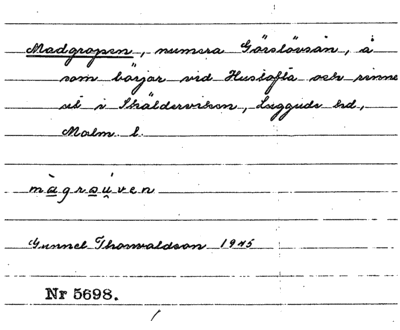 Madgropen, numera Görslövsån, å
som börjar vid Hustofta och rinne
ut i Skälderviken, Luggude hd,
Malm. l.
màgroúven
Gunnel Thorvaldson 1945
Nr 5698.